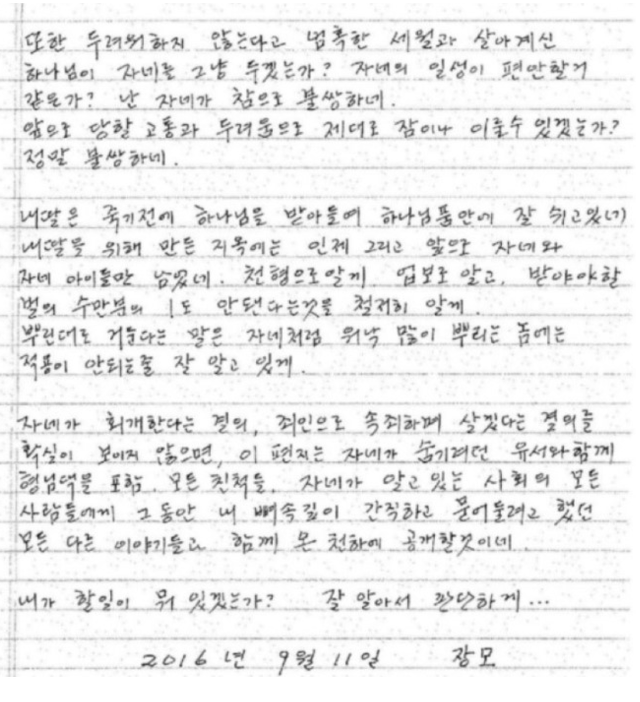 또한 두려워하지 않는다고 넘혹한 세월과 살아계신
하나님이 자네를 그냥 두겠는가? 자네의 일생이 편안할거
같은가? 난 자네가 참으로 불쌍하네.
앞으로 당할 고통과 두려움으로 제대로 잠이나 이룰수 있겠는가?
정말 불쌍하네.
내딸은 죽기전에 하나님을 받아들여 하나님품안에 잘 쉬고있네
내딸을 위해 만든 지옥에는 인제 그리고 앞으로 자네와
자네 아이들만 남았네. 천형으로알게 업보로 알고, 받아야할
벌의 수만분의 1도 안됀다는것을 철저히 알게.
뿌린대로 거둔다는 말은 자네처럼 워낙 많이 뿌리는 놈에는
적용이 안되는줄 잘 알고 있게.
자네가 회개한다는 결의, 죄인으로 속죄하며 살겠다는 결의를
확실이 보이지 않으면, 이 편지는 자네가 숨기려던 유서와함께
형님댁을 포함, 모든 친척들, 자네가 알고 있는 사회의 모든
사람들에게 그동안 내 뼈속깊이 간직하고 묻어둘려고 했던
모든 다른 이야기들과 함께 온 천하에 공개할것이네.
내가 할일이 뭐 있겠는가? 잘 알아서 판단하게...
2016년 9월 11일 장모